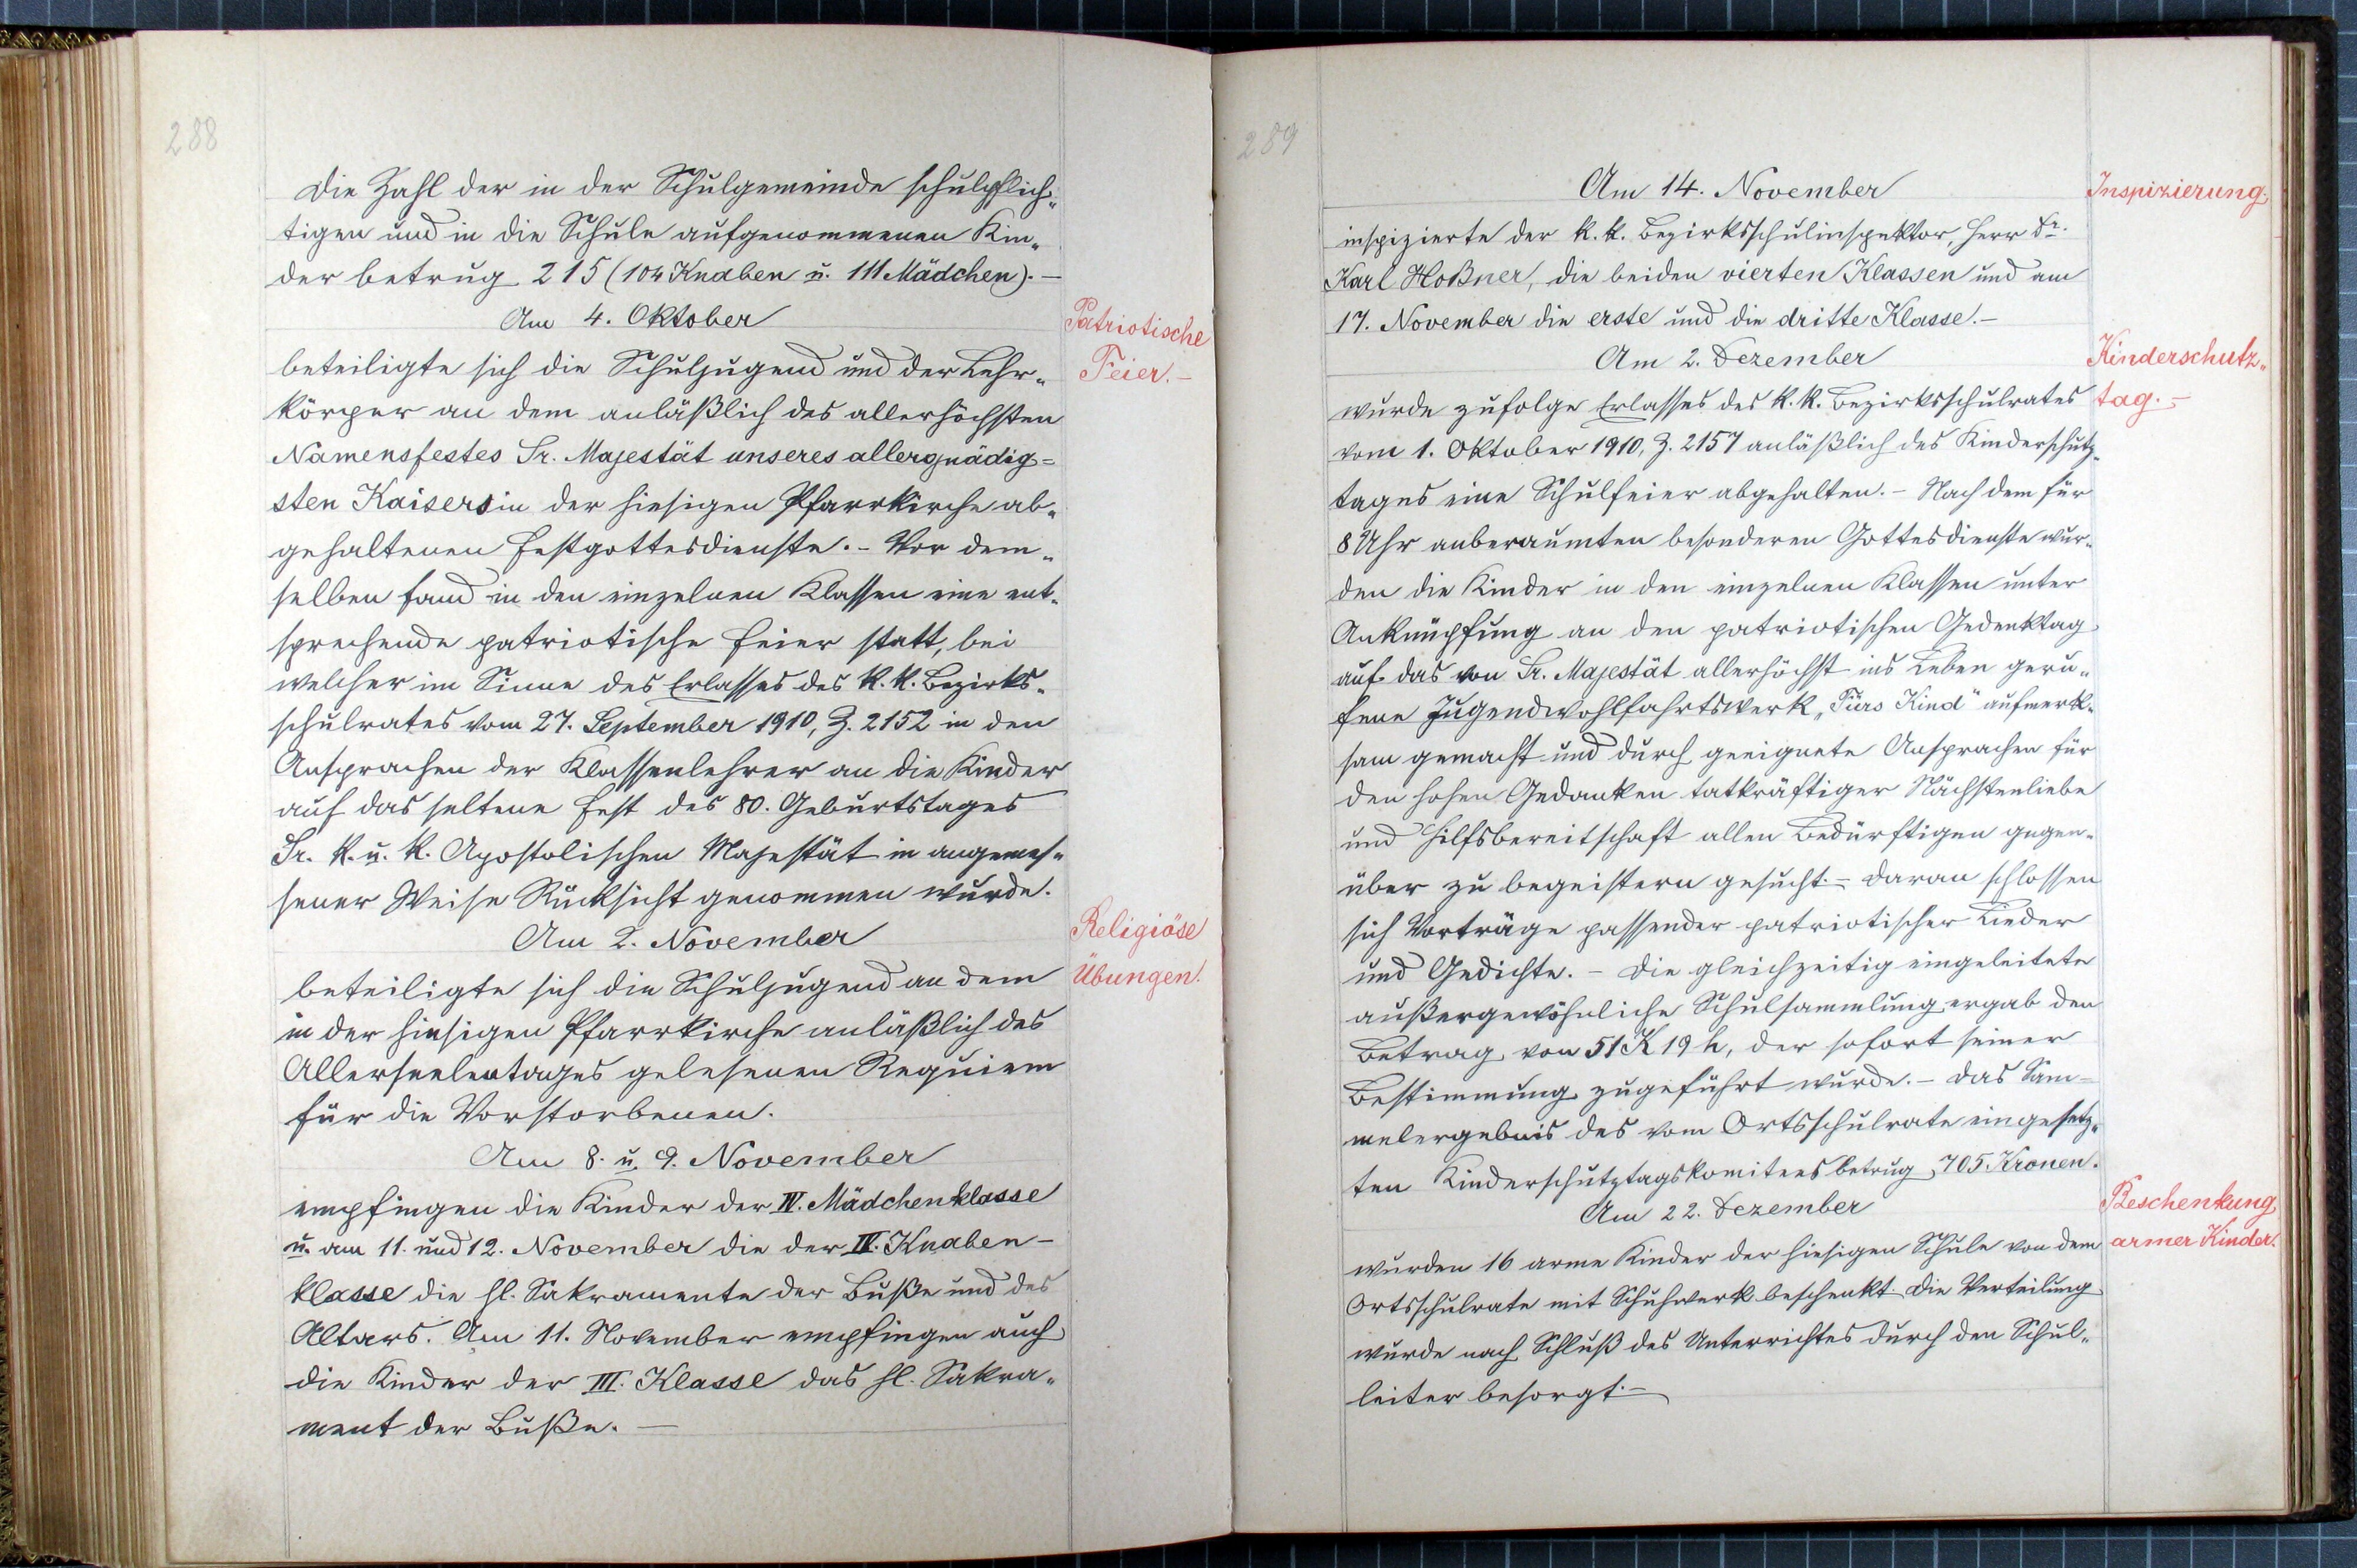 288
Die Zahl der in der Schulgemeinde schulpflich-
tigen und in die Schule aufgenommenen Kin-
der betrug 215 (104 Knaben u. 111 Mädchen). –
Am 4. Oktober
Patriotische
Feier. –
beteiligte sich die Schuljugend und der Lehr-
körper an dem anläßlich des allerhöchsten
Namensfestes Sr. Majestät unseres allergnädig=
sten Kaisers in der hiesigen Pfarrkirche ab-
gehaltenen Festgottesdienste. – Vor dem-
selben fand in den einzelnen Klassen eine ent-
sprechende patriotische Feier statt, bei
welcher im Sinne des Erlasses des k. k. Bezirks-
schulrates vom 27. September 1910, Z. 2152 in den
Ansprachen der Klassenlehrer an die Kinder
auf das seltene Fest des 80. Geburtstages
Sr. k. u. k. Apostolischen Majestät in angemes-
sener Weise Rücksicht genommen wurde.
Am 2. November
Religiöse
Übungen.
beteiligte sich die Schuljugend an dem
in der hiesigen Pfarrkirche anläßlich des
Allerseelentages gelesenen Requiem
für die Verstorbenen.
Am 8. u. 9. November
empfingen die Kinder der IV. Mädchenklasse
u. am 11. und 12. November die der IV. Knaben-
klasse die hl. Sakramente der Buße und des
Altars. Am 11. November empfingen auch
die Kinder der III. Klasse das hl. Sakra-
ment der Buße. –
289
Am 14. November
Inspizierung.
inspizierte der k. k. Bezirksschulinspektor, Herr Dr.
Karl Hoßner, die beiden vierten Klassen und am
17. November die erste und die dritte Klasse. –
Am 2. Dezember
Kinderschutz-
tag. –
wurde zufolge Erlasses des k. k. Bezirksschulrates
vom 1. Oktober 1910, Z. 2157 anläßlich des Kinderschutz-
tages eine Schulfeier abgehalten. – Nach dem für
8 Uhr anberaumten besonderen Gottesdienste wur-
den die Kinder in den einzelnen Klassen unter
Anknüpfung an den patriotischen Gedenktag
auf das von Sr. Majestät allerhöchst ins Leben geru-
fene Jugendwohlfahrtswerk „Fürs Kind“ aufmerk-
sam gemacht und durch geeignete Ansprachen für
den hohen Gedanken tatkräftiger Nächstenliebe
und Hilfsbereitschaft allen Bedürftigen gegen-
über zu begeistern gesucht. – Daran schlossen
sich Vorträge passender patriotischer Lieder
und Gedichte. – Die gleichzeitig eingeleitete
außergewöhnliche Schulsammlung ergab den
Betrag von 51 K 19 h, der sofort seiner
Bestimmung zugeführt wurde. – Das Sam-
melergebnis des vom Ortsschulrate eingesetz-
ten Kinderschutztagskomitees betrug 705 Kronen.
Am 22. Dezember
Beschenkung
armer Kinder.
wurden 16 arme Kinder der hiesigen Schule von dem
Ortsschulrate mit Schuhwerk beschenkt. Die Verteilung
wurde nach Schluß des Unterrichtes durch den Schul-
leiter besorgt. –